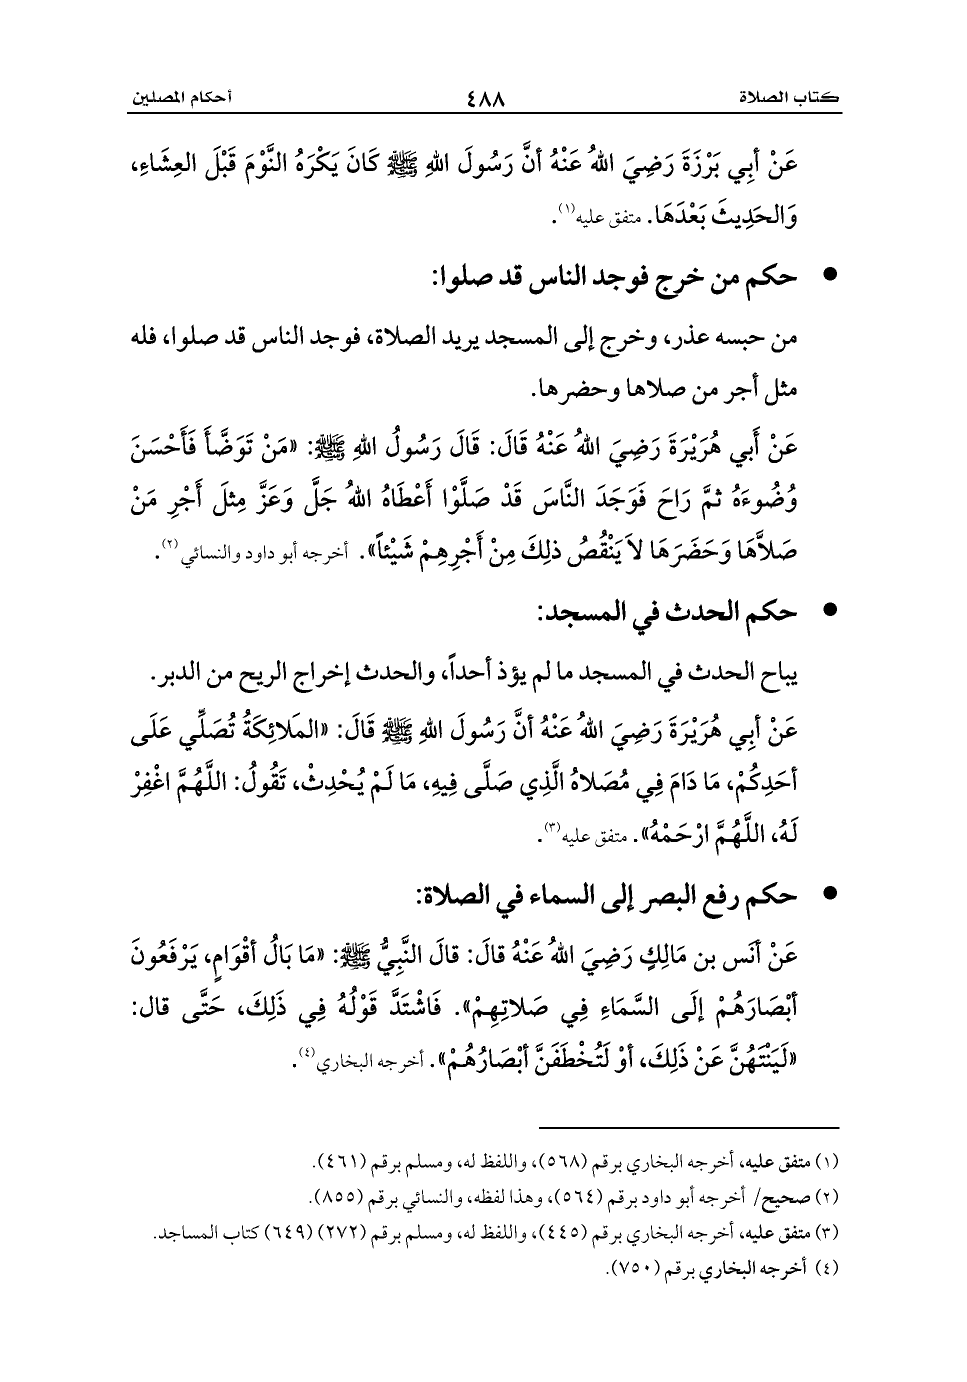 كتاب الصلاة ٤٨٨ أحكام المصلين
عَنْ أبِي بَرْزَةَ رَضِيَ اللهُ عَنْهُ أنَّ رَسُولَ اللهِ ﷺ كَانَ يَكْرَهُ النَّوْمَ قَبْلَ العِشَاءِ،
وَالحَدِيثَ بَعْدَهَا. متفق عليه(١).
● حكم من خرج فوجد الناس قد صلوا:
من حبسه عذر، وخرج إلى المسجد يريد الصلاة، فوجد الناس قد صلوا، فله
مثل أجر من صلاها وحضرها.
عَنْ أَبي هُرَيْرَةَ رَضِيَ اللهُ عَنْهُ قَالَ: قَالَ رَسُولُ اللهِ ﷺ: «مَنْ تَوَضَّأَ فَأَحْسَنَ
وُضُوءَهُ ثمَّ رَاحَ فَوَجَدَ النَّاسَ قَدْ صَلَّوْا أَعْطَاهُ اللهُ جَلَّ وَعَزَّ مِثلَ أَجْرِ مَنْ
صَلاَّهَا وَحَضَرَهَا لاَ يَنْقُصُ ذلِكَ مِنْ أَجْرِهِمْ شَيْئاً». أخرجه أبو داود والنسائي(٢).
● حكم الحدث في المسجد:
يباح الحدث في المسجد ما لم يؤذ أحداً، والحدث إخراج الريح من الدبر.
عَنْ أبِي هُرَيْرَةَ رَضِيَ اللهُ عَنْهُ أنَّ رَسُولَ اللهِ ﷺ قَالَ: «المَلائِكَةُ تُصَلِّي عَلَى
أحَدِكُمْ، مَا دَامَ فِي مُصَلاهُ الَّذِي صَلَّى فِيهِ، مَا لَمْ يُحْدِثْ، تَقُولُ: اللَّهُمَّ اغْفِرْ
لَهُ، اللَّهُمَّ ارْحَمْهُ». متفق عليه(٣).
● حكم رفع البصر إلى السماء في الصلاة:
عَنْ أنَس بن مَالِكٍ رَضِيَ اللهُ عَنْهُ قالَ: قالَ النَّبِيُّ ﷺ: «مَا بَالُ أقْوَامٍ، يَرْفَعُونَ
أبْصَارَهُمْ إلَى السَّمَاءِ فِي صَلاتِهِمْ». فَاشْتَدَّ قَوْلُهُ فِي ذَلِكَ، حَتَّى قال:
«لَيَنْتَهُنَّ عَنْ ذَلِكَ، أوْ لَتُخْطَفَنَّ أبْصَارُهُمْ». أخرجه البخاري(٤).
(١) متفق عليه، أخرجه البخاري برقم (٥٦٨)، واللفظ له، ومسلم برقم (٤٦١).
(٢) صحيح/ أخرجه أبو داود برقم (٥٦٤)، وهذا لفظه، والنسائي برقم (٨٥٥).
(٣) متفق عليه، أخرجه البخاري برقم (٤٤٥)، واللفظ له، ومسلم برقم (٢٧٢) (٦٤٩) كتاب المساجد.
(٤) أخرجه البخاري برقم (٧٥٠).